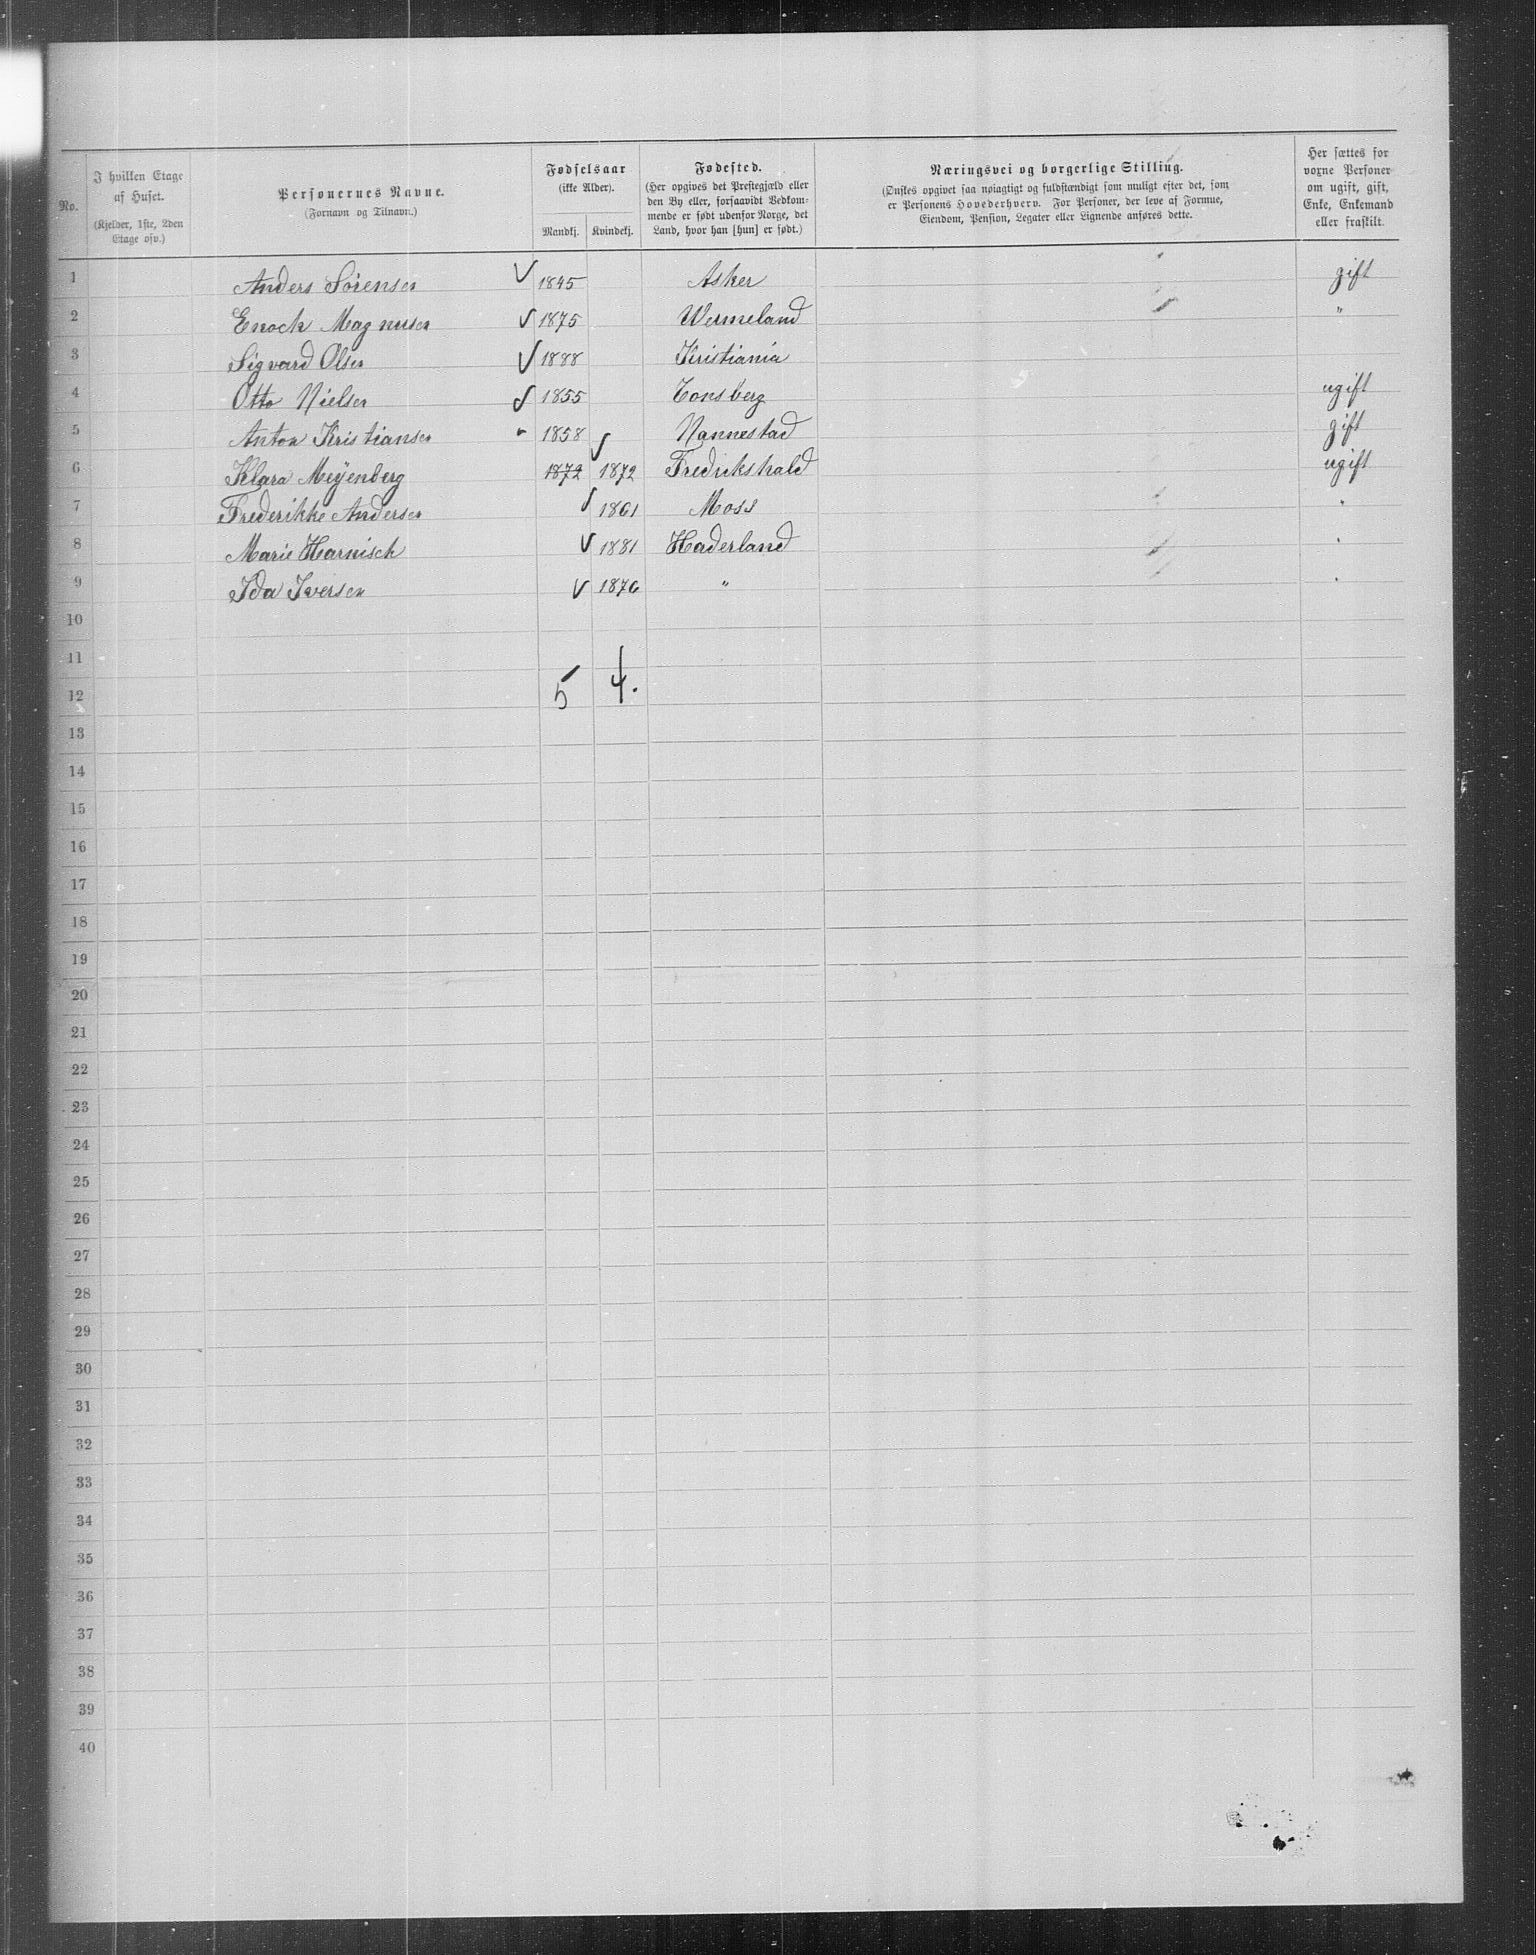 No.
I hvilken Etage af Huset.
(Kjelder, 1ste, 2den Etage osv.)
Personernes Navne.
(Fornavn og Tilnavn.)
Fødselsaar
(ikke Alder).
Mandkj. Kvindekj.
Fødested.
(Her opgives det Prestegjæld eller
den By eller, forsaavidt Vedkom-
mende er født udenfor Norge, det
Land, hvor han [hun] er født.)
Næringsvei og borgerlige Stilling.
(Ønskes opgivet saa nøiagtigt og fuldstændigt som muligt efter det, som
er Personens Hovederhverv. For Personer, der leve af Formue,
Eiendom, Pension, Legater eller Lignende anføres dette.
Her sættes for
voxne Personer
om ugift, gift,
Enke, Enkemand
eller fraskilt.
1 Anders Sörensen 1845 Asker gift
2 Enock Magnusen 1875 Wermeland "
3 Sigvard Olsen 1888 Kristiania
4 Otto Nielsen 1855 Tonsberg ugift
5 Anton Kristiansen 1858 Nannestad gift
6 Klara Meÿenberg 1872 1872 Fredrikshald ugift
7 Frederikke Andersen 1861 Moss "
8 Marie Harnisch 1881 Haderland "
9 Ida Iversen 1876 " "
10
11
12 5 4.
13
14
15
16
17
18
19
20
21
22
23
24
25
26
27
28
29
30
31
32
33
34
35
36
37
38
39
40